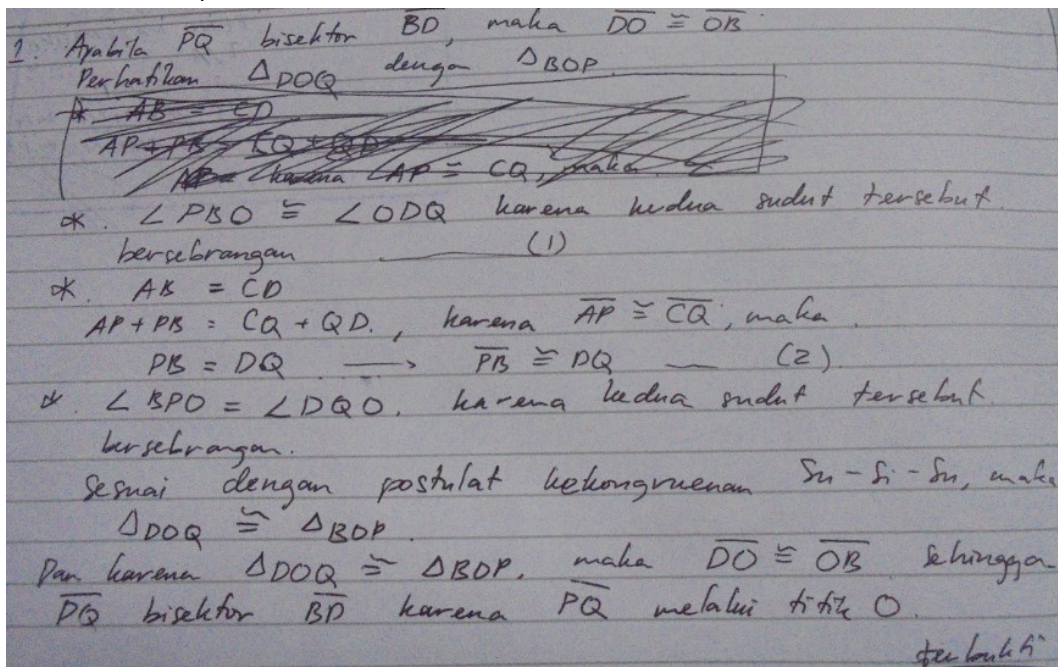 1. Apabila \overline{PQ} bisektor \overline{BD}, maka \overline{DO} ≅ \overline{OB}
Perhatikan △DOQ dengan △BOP
* AB = CD
AP + PB = CQ + QD
karena AP ≅ CQ, maka
* ∠PBO ≅ ∠ODQ karena kedua sudut tersebut
bersebrangan (1)
* AB = CD
AP + PB = CQ + QD., karena \overline{AP} ≅ \overline{CQ}, maka
PB = DQ → \overline{PB} ≅ DQ — (2)
* ∠BPO = ∠DQO. karena kedua sudut tersebut
bersebrangan.
Sesuai dengan postulat kekongruenan Su - Si - Su, maka
△DOQ ≅ △BOP.
Dan karena △DOQ ≅ △BOP, maka \overline{DO} ≅ \overline{OB} sehingga
\overline{PQ} bisektor \overline{BD} karena \overline{PQ} melalui titik O.
terbukti